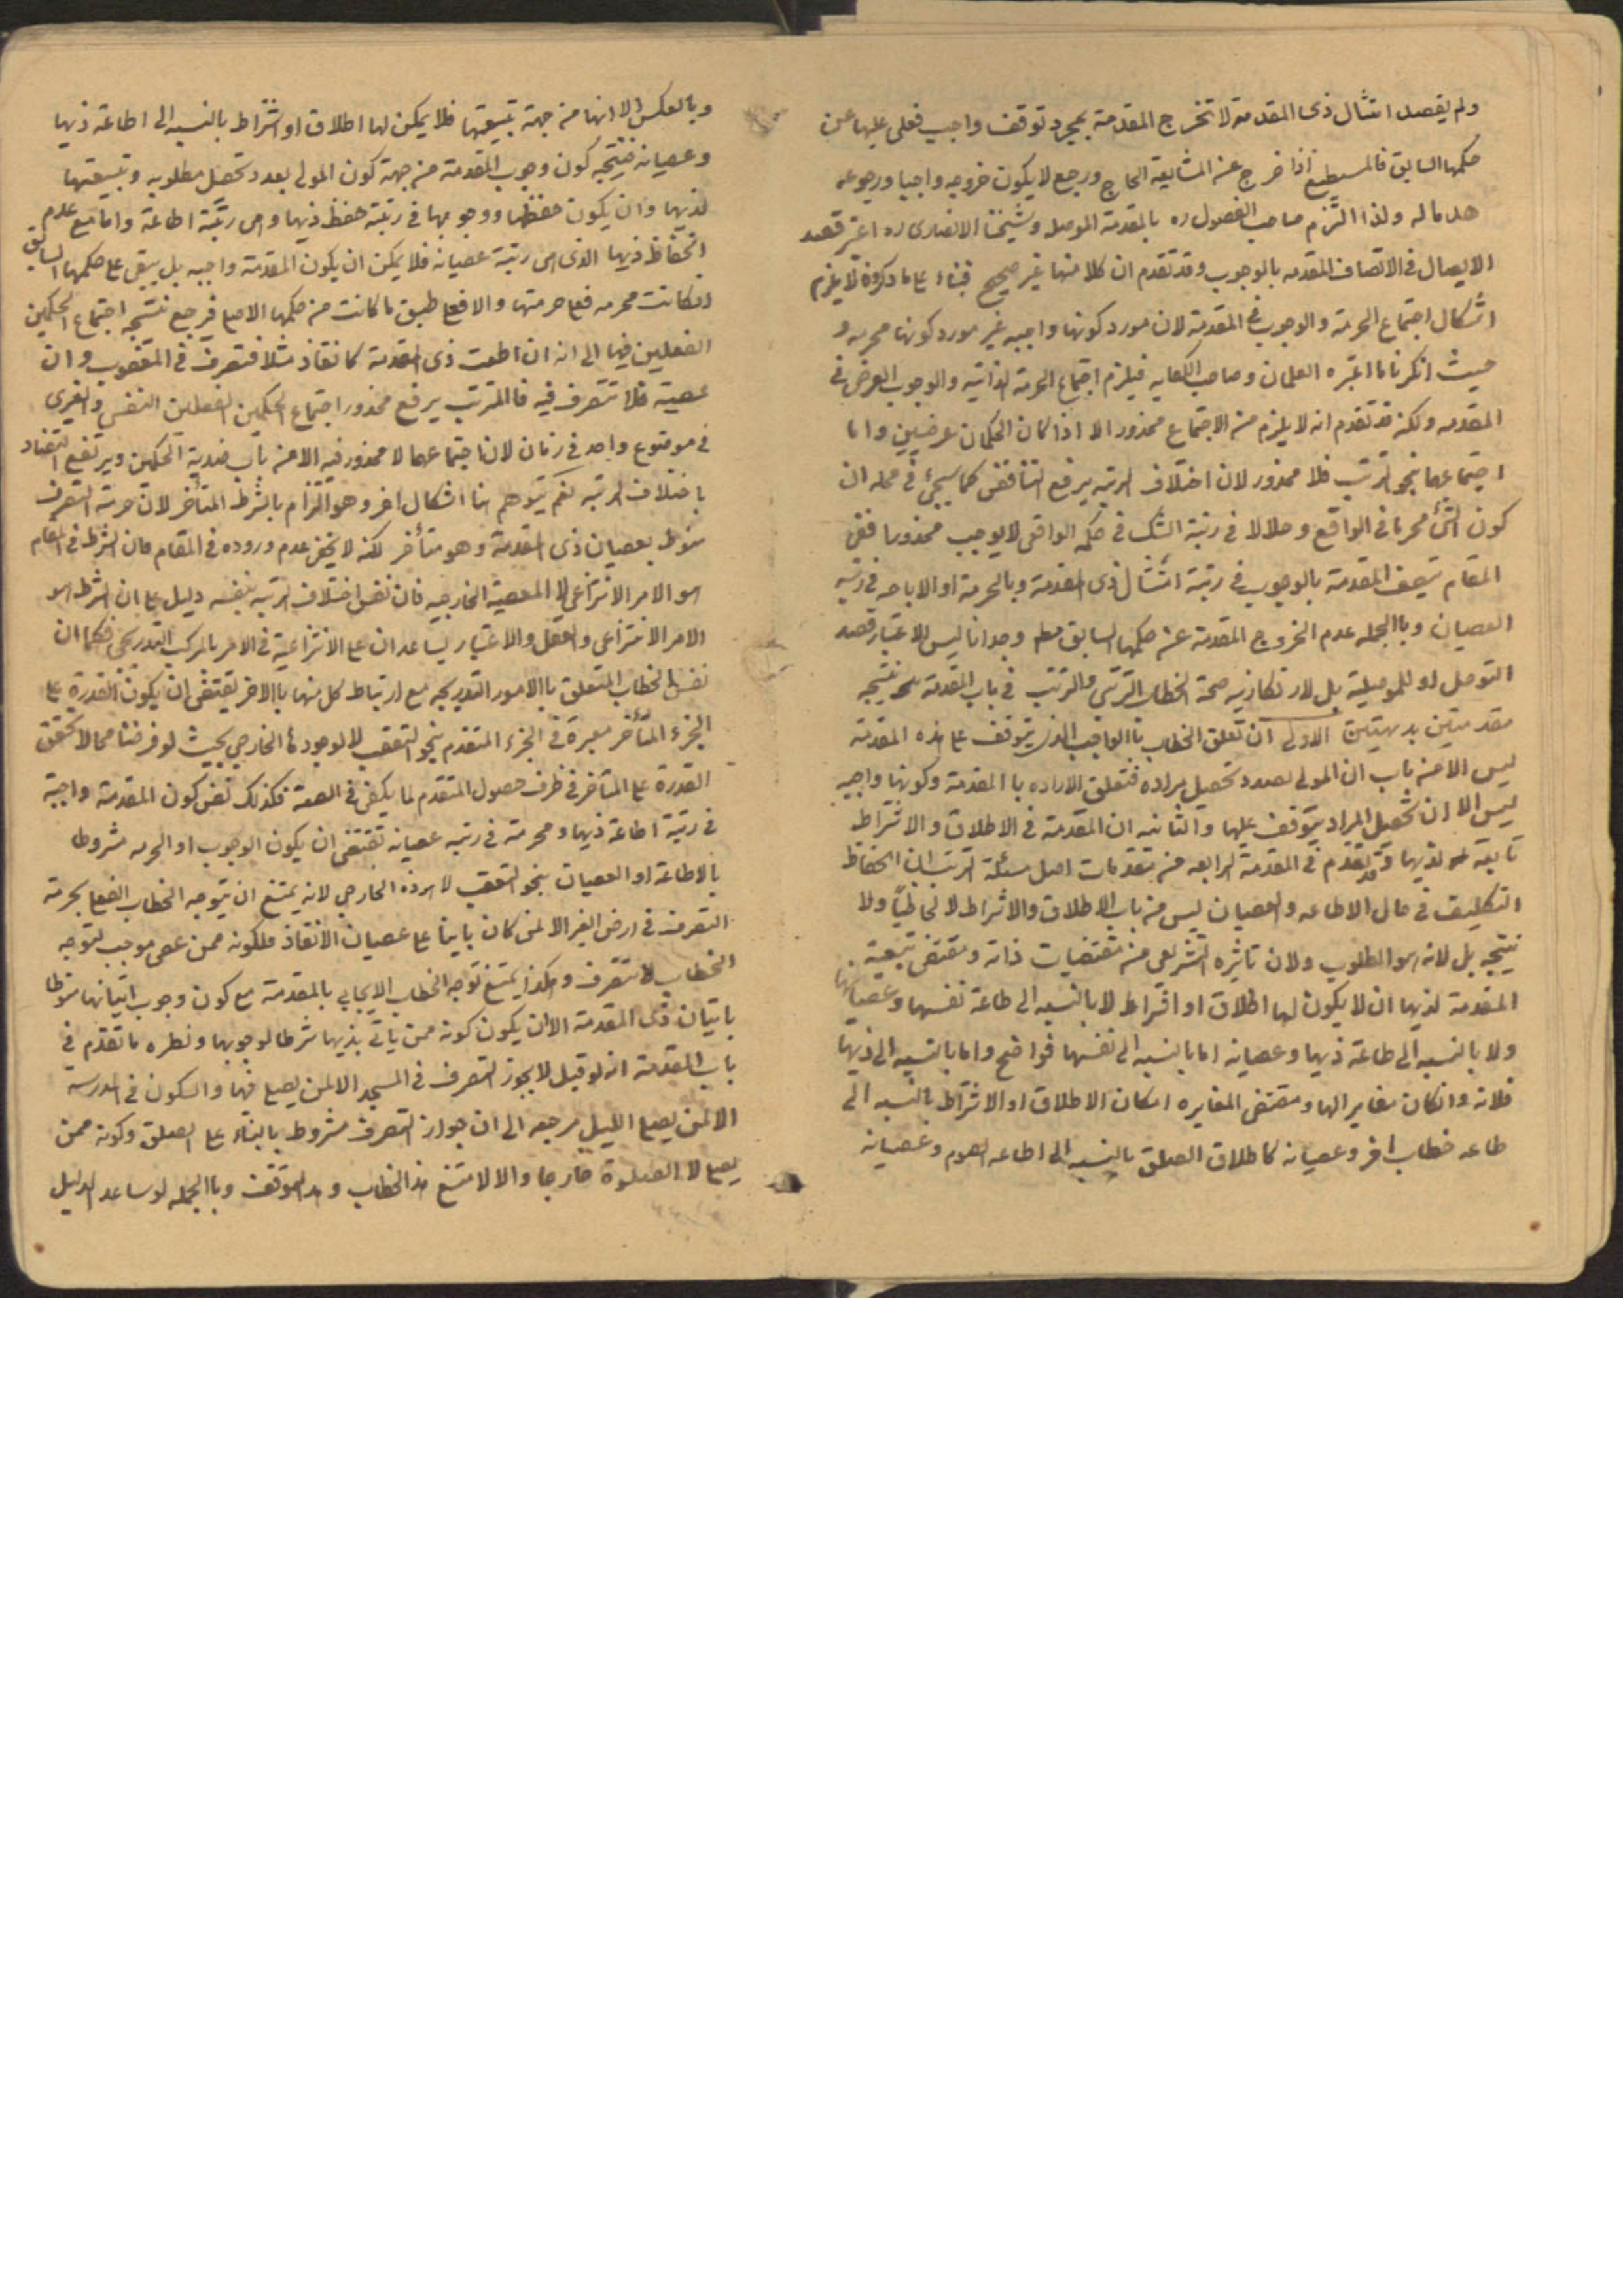 ولم يقصد امتثال ذى المقدمة لا تخرج المقدمة بمجرد توقف واجب فعلى عليها عن
حكمها السابق فالمستطيع اذا خرج عنه لمشايعة الحاج ورجع لا يكون خروجه واجبا ورجوعه
ولذا التزم صاحب الفصول ره بالمقدمة الموصله وشيخنا الانصارى ره اعتبر قصد
الايصال فى الاتصاف المقدمه بالوجوب وقد تقدم ان كلا منهما غير صحيح فبناء على ما ذكروه لا يلزم
اشكال اجتماع الحرمة والوجوب فى المقدمة لان مورد كونها واجبه غير مورد كونها محرمه و
حيث انكرنا ما اعتبره العلمان وصاحب الكفايه فيلزم اجتماع الحرمة الذاتيه والوجوب العرضى فى
المقدمه ولكنه قد تقدم انه لا يلزم من الاجتماع محذور الا اذا كان الحكمان عرضيين واما
اجتماعهما بنحو الترتب فلا محذور لان اختلاف الرتبه يرفع التناقض كما سيجئ فى محله ان
كون الشئ محرما فى الواقع وحلالا فى رتبة الشك فى حكمه الواقعى لا يوجب محذورا ففى
المقام تتصف المقدمة بالوجوب فى رتبة امتثال ذى المقدمة وبالحرمة او الاباحه فى رتبه
العصيان وبالجمله عدم الخروج المقدمة عن حكمها السابق وجدانا ليس لاعتبار قصد
التوصل او للموصلية بل لارتكازيه صحة الخطاب الترتبى والترتب فى باب المقدمة نتيجه
مقدمتين بديهتين الاولى ان تعلق الخطاب بالواجب الذى يتوقف على هذه المقدمة
ليس الا من باب ان المولى بصدد تحصيل مراده فتعلق الاراده بالمقدمة وكونها واجبه
ليس الا ان تحصيل المراد يتوقف عليها والثانيه ان المقدمة فى الاطلاق والاشتراط
تابعة لذيها وقد تقدم فى المقدمة الرابعه من مقدمات اصل مسئلة الترتب ان انحفاظ
التكليف فى حال الاطاعه والعصيان ليس من باب الاطلاق والاشتراط لا لحاظيا ولا
نتيجه بل لانه هو المطلوب ولان تاثيره التشريعى من مقتضيات ذاته ومقتضى تبعية
المقدمة لذيها ان لا يكون لها اطلاق او اشتراط لا بالنسبه الى طاعة نفسها وعصيانها
ولا بالنسبه الى طاعة ذيها وعصيانه اما بالنسبه الى نفسها فواضح واما بالنسبه الى ذيها
فلانه وان كان مغايرا لها ومقتضى المغايره امكان الاطلاق او الاشتراط بالنسبه الى
طاعه خطاب اخر وعصيانه كاطلاق الصلوة بالنسبه الى اطاعه الصوم وعصيانه
وبالعكس الا انها من جهة تبعيتها فلا يمكن لها اطلاق او اشتراط بالنسبه الى اطاعة ذيها
وعصيانه فنتيجه كون وجوب المقدمة من جهة كون المولى بصدد تحصيل مطلوبه وتبعيتها
لذيها وان يكون حفظها ووجوبها فى رتبة حفظ ذيها وهى رتبة اطاعة واما مع عدم
انحفاظ ذيها الذى هى رتبة عصيانه فلا يمكن ان يكون المقدمة واجبه بل يبقى على حكمها السابق
ان كانت محرمه فعلى حرمتها والا فعلى طبق ما كانت من حكمها الاصلى فرجع نتيجه اجتماع الحكمين
الفعليين فيها الى انه ان اطعت ذى المقدمة كانقاذ مثلا فتصرف فى المغصوب وان
عصيته فلا تتصرف فيه فالترتب يرفع محذور اجتماع الحكمين الفعليين النفسى والغيرى
فى موضوع واحد فى زمان لان اجتماعهما لا محذور فيه الا من باب ضدية الحكمين ويرتفع التضاد
باختلاف الرتبه نعم يتوهم هنا اشكال اخر وهو التزام بالشرط المتأخر لان حرمة التصرف
منوط بعصيان ذى المقدمة وهو متأخر لكنه لا يخفى عدم وروده فى المقام فان الشرط فى المقام
هو الامر الانتزاعى لا المعصية الخارجيه فان نفس اختلاف الرتبه بنفسه دليل على ان الشرط هو
الامر الانتزاعى والعقل والاعتبار يساعدان على الانتزاعية فى الامر بالمركب التدريجى فكما ان
نفس الخطاب المتعلق بالامور التدريجيه مع ارتباط كل منها بالاخر يقتضى ان يكون القدرة على
الجزء المتأخر معتبرة فى الجزء المتقدم بنحو التعقب لا الوجودها الخارجى بحيث لو فرضنا محالا تحقق
القدرة على المتاخر فى ظرف حصول المتقدم لما يكفى فى الصحة فكذلك نفس كون المقدمة واجبة
فى رتبة اطاعة ذيها ومحرمة فى رتبه عصيانه تقتضى ان يكون الوجوب او الحرمه مشروطا
بالاطاعة او العصيان بنحو التعقب لا بوجوده الخارجى لانه يمتنع ان يتوجه الخطاب الفعلى بحرمة
التصرف فى ارض الغير الا لمن كان بانيا على عصيان الانقاذ فلكونه ممن عصى موجب لتوجه
الخطاب لا تتصرف وهكذا يمتنع توجه الخطاب الايجابى بالمقدمة مع كون وجوب اتيانها منوطا
باتيان ذى المقدمة الا ان يكون كونه ممن ياتى بذيها شرطا لوجوبها ونظيره ما تقدم فى
باب المقدمة انه لو قيل لا يجوز التصرف فى المسجد الا لمن يصلى فيها والسكون فى المدرسة
الا لمن يصلى الليل مرجعه الى ان جواز التصرف مشروط بالبناء على الصلوة وكونه ممن
يصلى لا الصلوة خارجا والا لامتنع هذا الخطاب وهذا التوقف وبالجمله لو ساعد الدليل